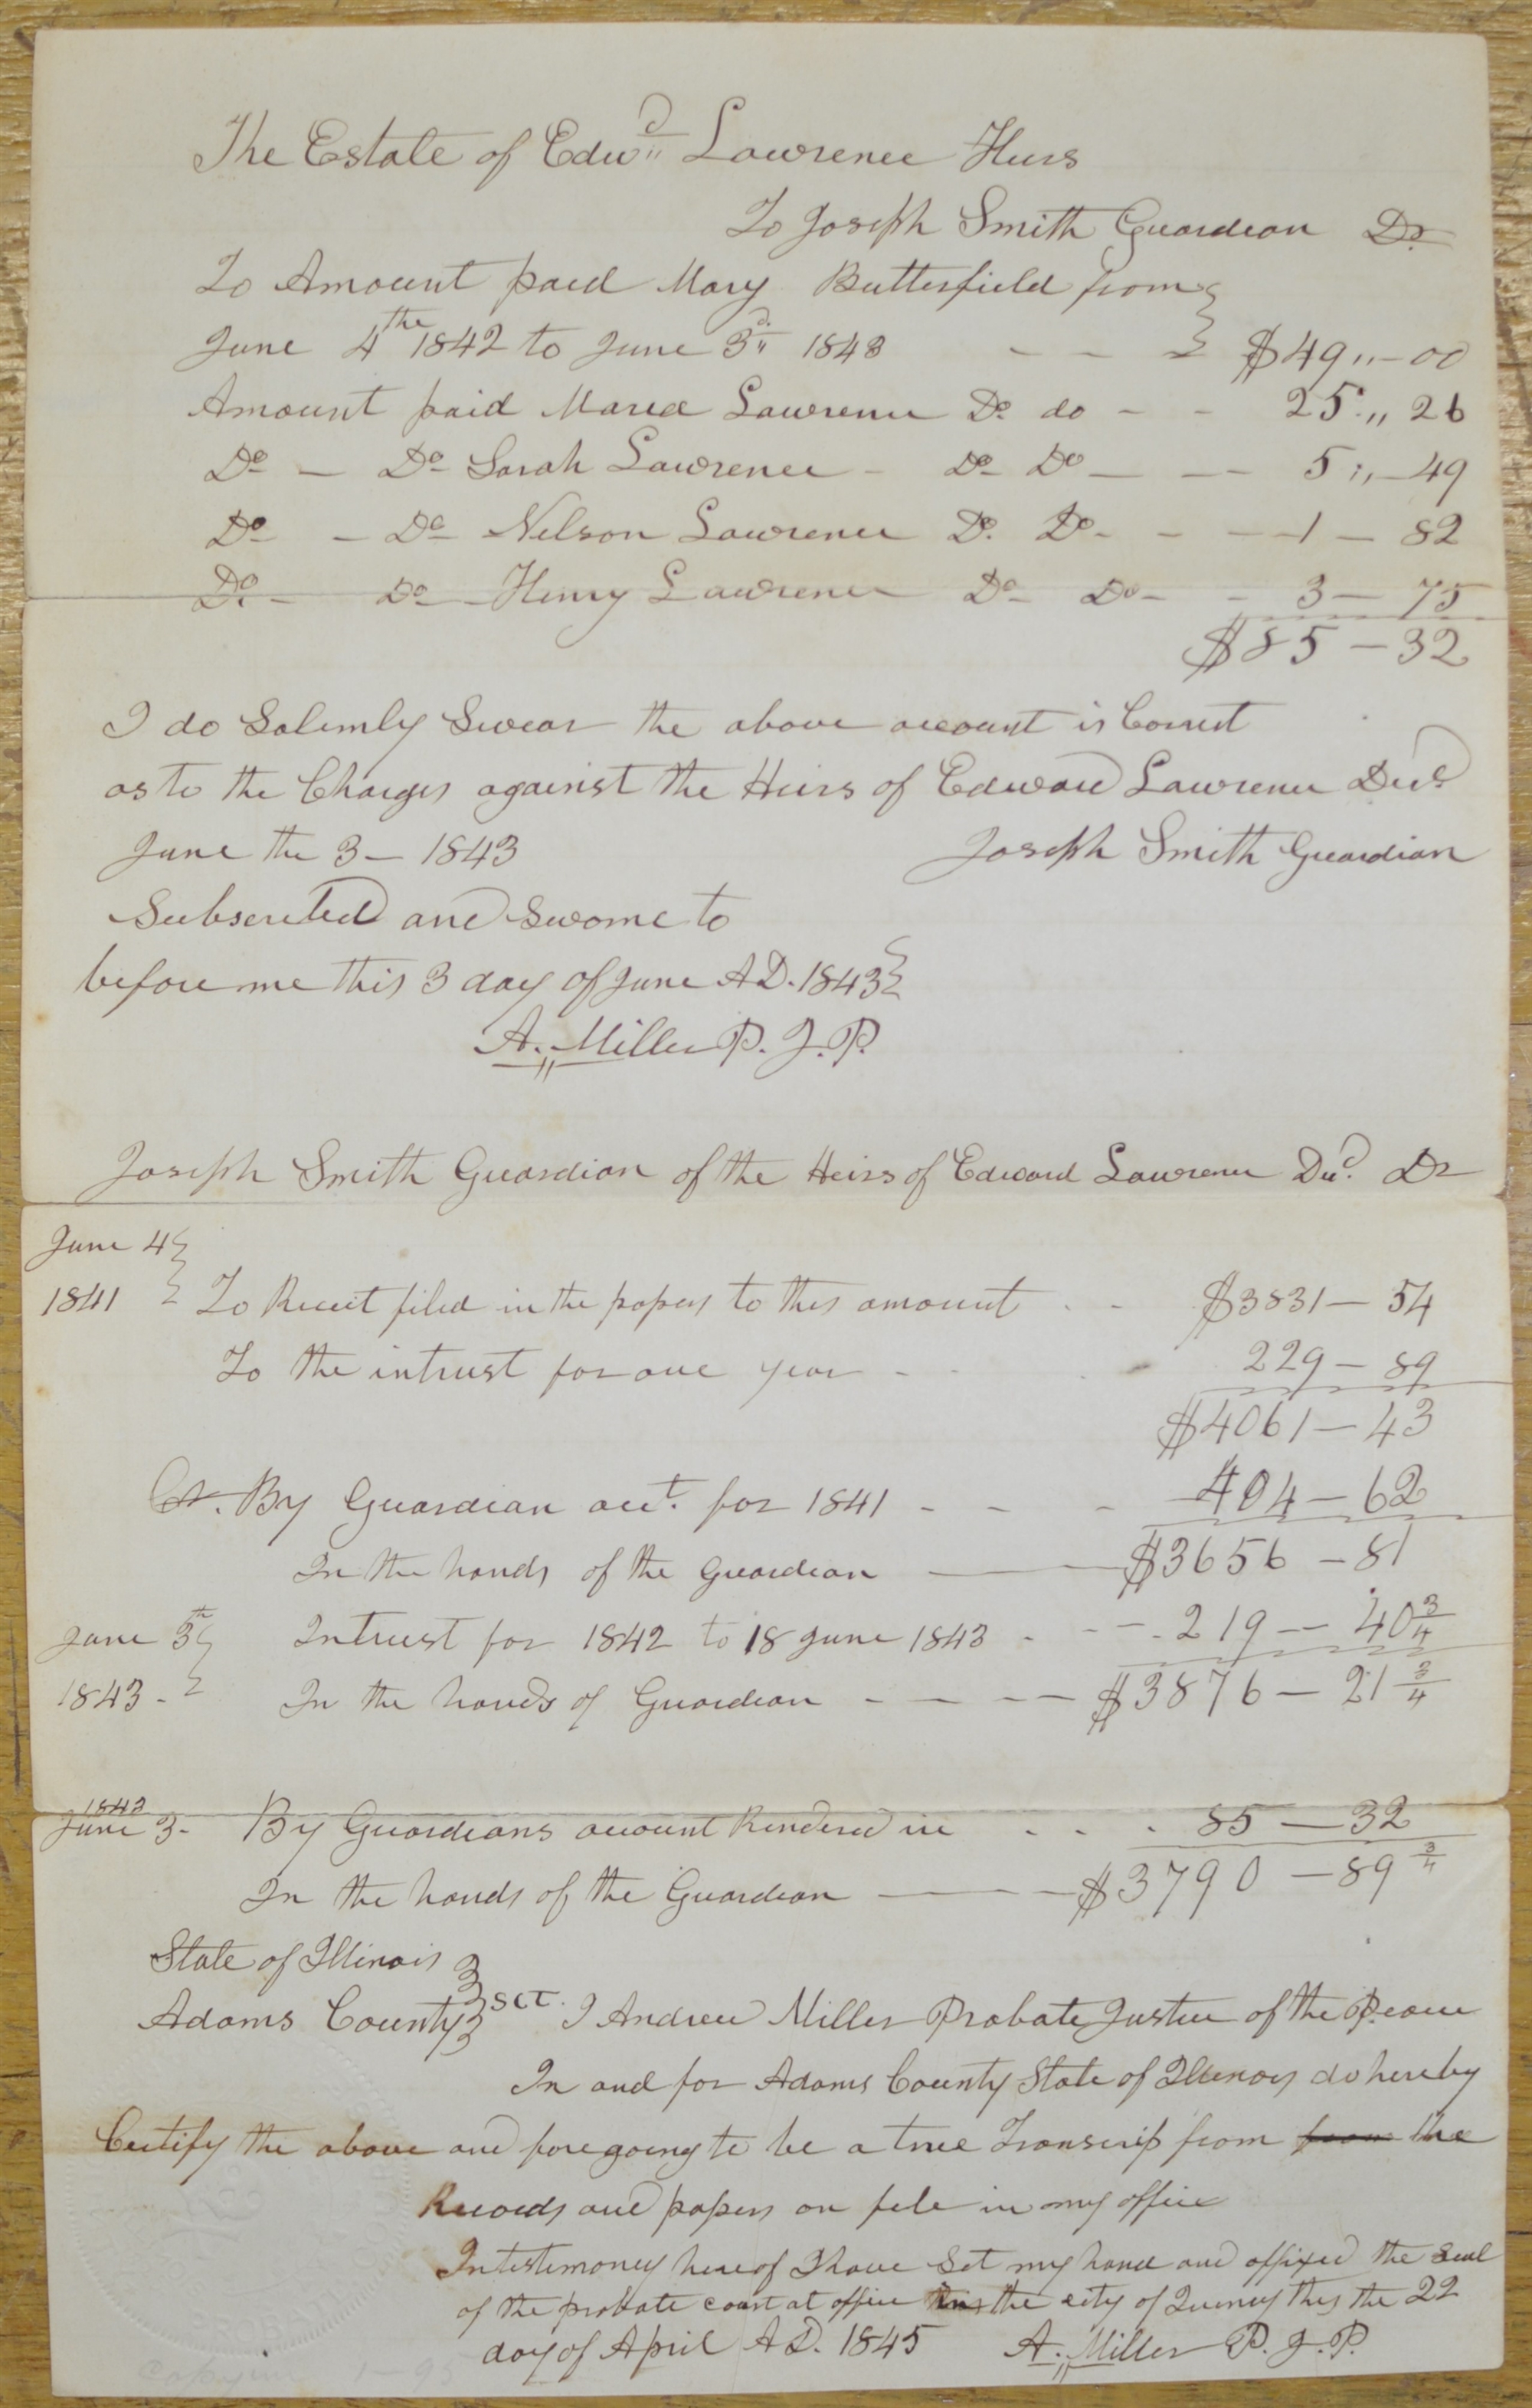 The Estate of Edwd Lawrence Heirs
To Joseph Smith Guardian Dr.
To Amount paid Mary Butterfield from
June 4the 1842 to June 3d 1843 - - $49,,-00
Amount paid Maria Lawrence Do do - - 25.,, 26
Do - Do Sarah Lawrence - Do Do - - - 5,,-49
Do - Do Nelson Lawrence Do. Do - - - 1 - 82
Do. - Do - Henry Lawrence Do - Do - - 3 - 75
$85 - 32
I do Solemly Swear the above account is Correct
as to the Charges against the Heirs of Edward Lawrence Decd
June the 3 - 1843 Joseph Smith Guardian
Subscribed and Sworne to
before me this 3 day of June A.D. 1843
A. Miller P. J. P.
Joseph Smith Guardian of the Heirs of Edward Lawrence Decd. Dr
June 4
1841 To Receit filed in the papers to this amount . - $3831 - 54
To the intrust for one year - - 229 - 89
$4061 - 43
Cr. By Guardian acct. for 1841 - - - 404 - 62
In the hands of the Guardian — $3656 - 81
June 3th Intrust for 1842 to 18 June 1843 . - - . 219 - 40 3/4
1843 - In the hands of Guardian - - - - $3876 - 21 3/4
1843
June 3 - By Guardians account Rendered in . . . 85 - 32
In the hands of the Guardian — $3790 - 89 3/4
State of Illinois
Adams County SCT. I Andrew Miller Probate Justice of the Peace
In and for Adams County State of Illinois do hereby
Certify the above and foregoing to be a true Transcrip from from the
Records and papers on file in my office
In testimoney here of I have Set my hand and affixed the Seal
of the probate court at office in the city of Quincy this the 22
day of April A D. 1845 A. Miller P. J. P.